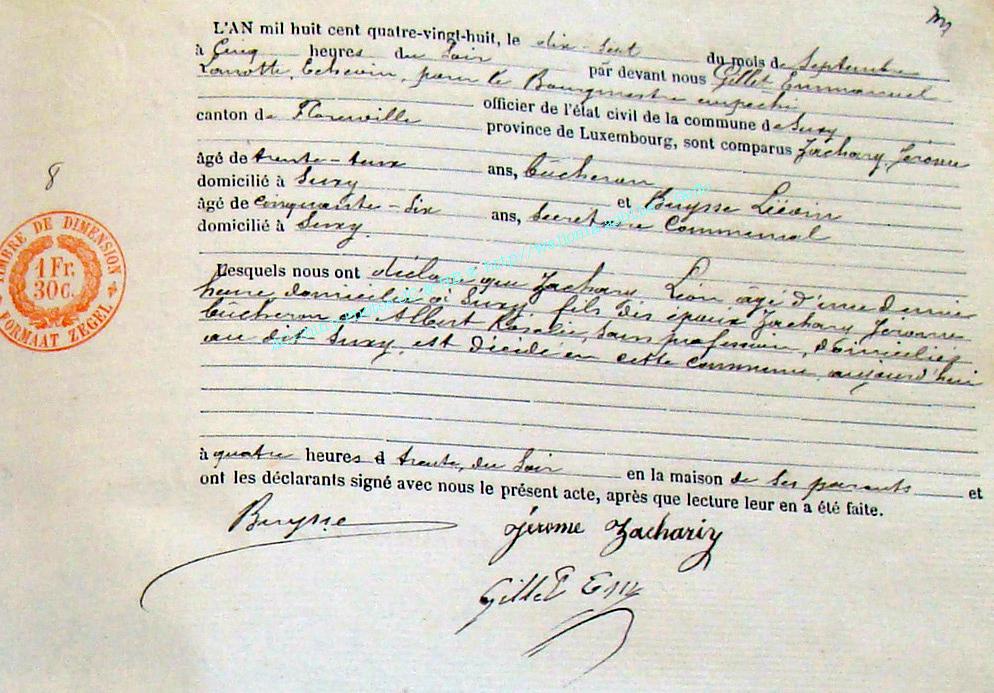 L'AN mil huit cent quatre-vingt-huit, le dix-sept du mois de Septembre
à Cinq heures du Soir par devant nous Gillet Emmanuel
Echevin, pour le Bourgmestre empeché
officier de l'état civil de la commune de Suxy
canton de Florenville province de Luxembourg, sont comparus Zachary Jérome
âgé de trente-deux ans, bûcheron
domicilié à Suxy et Buysse Liévin
âgé de cinquante-six ans, Secrétaire Communal
domicilié à Suxy.
Lesquels nous ont déclaré que Zachary Léon âgé d'une demie
heure domicilié à Suxy, fils des époux Zachary Jerome
bûcheron et Albert Rosalie, sans profession, domiciliés
au dit Suxy, est décédé en cette commune aujourd'hui
à quatre heures & trente, du Soir en la maison de ses parents et
ont les déclarants signé avec nous le présent acte, après que lecture leur en a été faite.
Buysse
Jérome Zachariy
Gillet Em
8
TIMBRE DE DIMENSION
1 Fr.
30 C.
FORMAAT ZEGEL